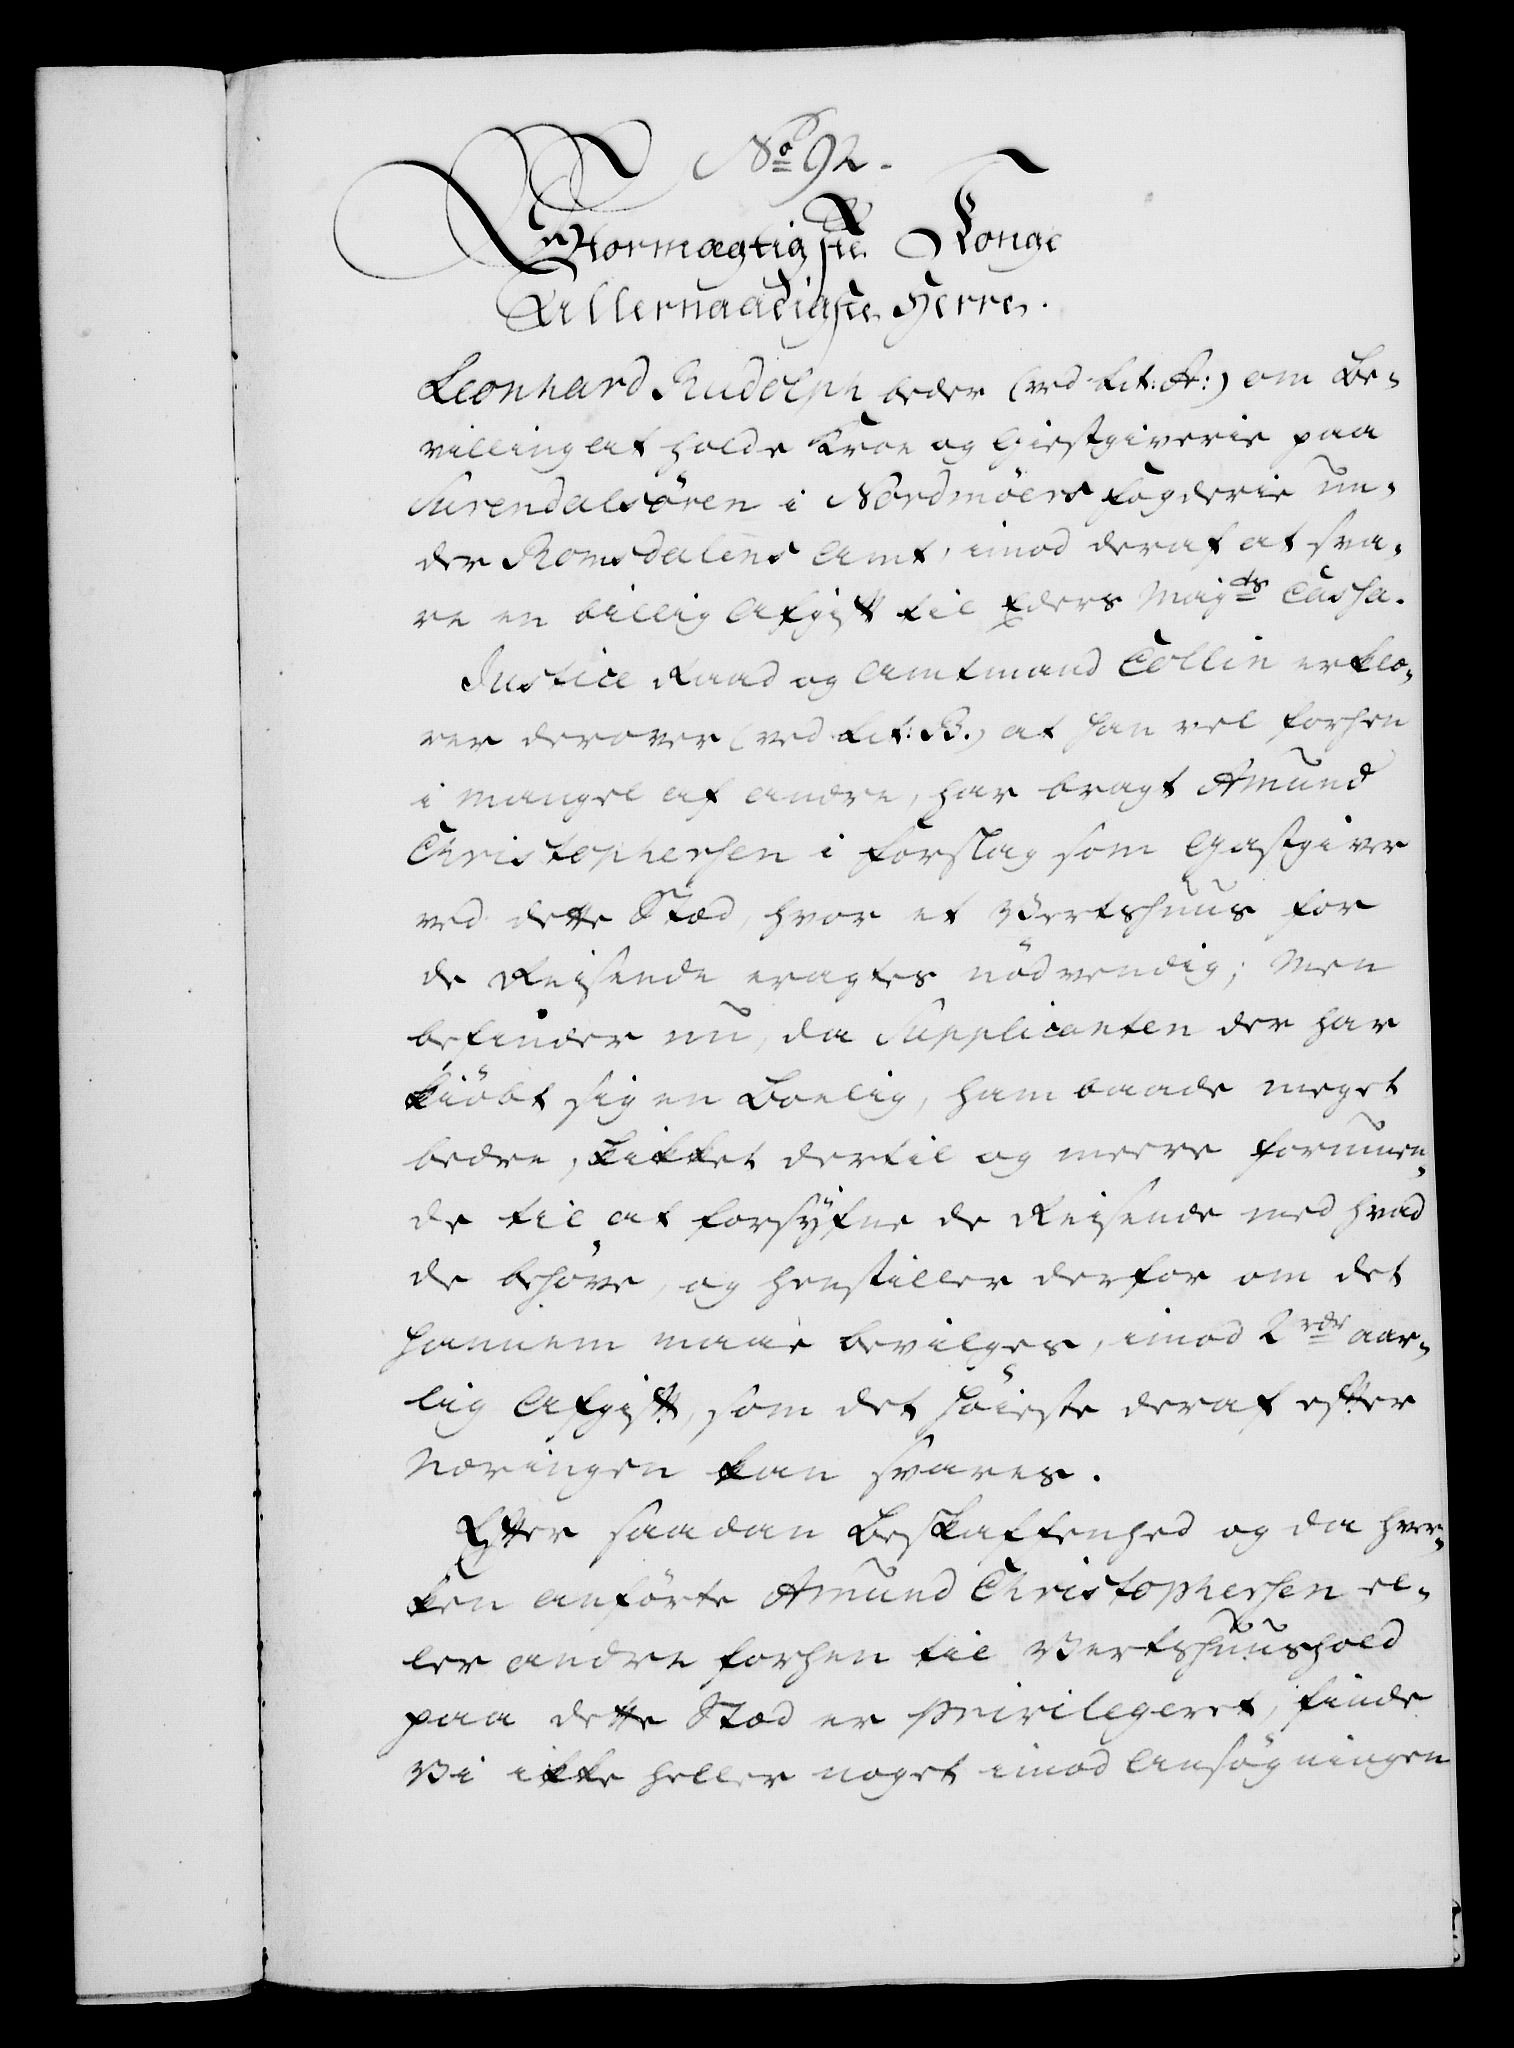 No 92.
Stormægtigste Konge
Allernaadigste Herre.
Leonhard Rudolph beder (ved Lit: A:) om Be-
villing at holde Kroe og Giestgiverie paa
Surendalsören i Nordmöers Fogderie un-
der Romsdalens Amt, imod deraf at sva-
re en billig Afgift til Eders Majts Cassa.
Justice Raad og Amtmand Collin erklæ-
rer derover (ved Lit: B.) at han vel forhen
i mangel af andre, har bragt Amund
Christophersen i Forslag som Gastgiver
ved dette Stæd, hvor et Vertshuus for
de Reisende eragtes nödvendig; Men
befinder nu, da Supplicanten der har
kiöbt sig en Boelig, ham baade meget
bedre skikket dertil og meere formuen-
de til at forsÿne de Reisende med hvad
de behöve, og henstiller derfor om det
hannem maae bevilges, imod 2 rdr aar-
lig Afgift, som det höieste deraf efter
Næringen kan svares.
Efter saadan Beskaffenhed og da hver-
ken anförte Amund Christophersen el-
ler andre forhen til Vertshuushold
paa dette Stæd er Privilegeret, finde
Vi ikke heller noget imod Ansögningen